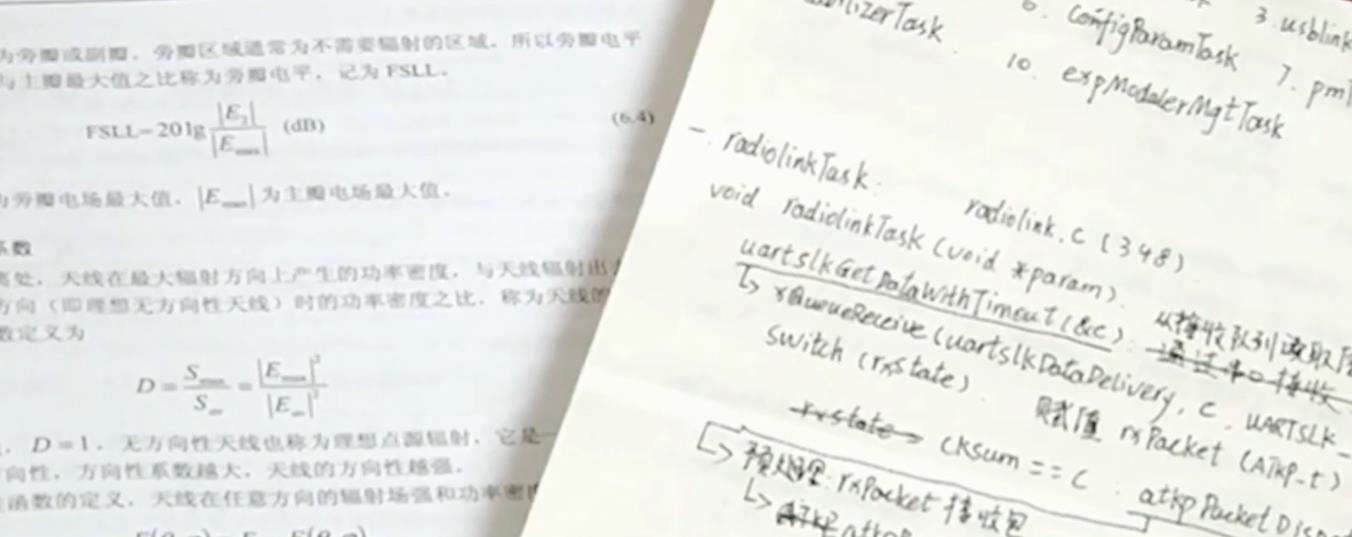 为旁瓣或副瓣。旁瓣区域通常为不需要辐射的区域，所以旁瓣电平
与主瓣最大值之比称为旁瓣电平，记为 FSLL。
FSLL=20lg |E₂| / |Emax| (dB) (6.4)
为旁瓣电场最大值，|Emax| 为主瓣电场最大值。
系数
离处，天线在最大辐射方向上产生的功率密度，与天线辐射出
方向（即理想无方向性天线）时的功率密度之比，称为天线的
数定义为
D = Smax / Sav = |Emax|² / |Eav|²
D=1，无方向性天线也称为理想点源辐射，它是一
向性，方向性系数越大，天线的方向性越强。
函数的定义，天线在任意方向的辐射场强和功率密度
3. usblink
izerTask 6. configParamTask 7. pm
10. expModuleMgtTask
一. radiolinkTask: radiolink.c (348)
void radiolinkTask (void *param).
uartslkGetDataWithTimeout (&c): 从接收队列读取
通过串口接收
↳ xQueueReceive (uartslkDataDelivery, c, UARTSLK_
switch (rxState) 赋值 rxPacket (ATKP_t)
rxstate cksum == c : atkpPacketDisp
↳ 预处理: rxPacket 接收包
↳ ATKP atkp